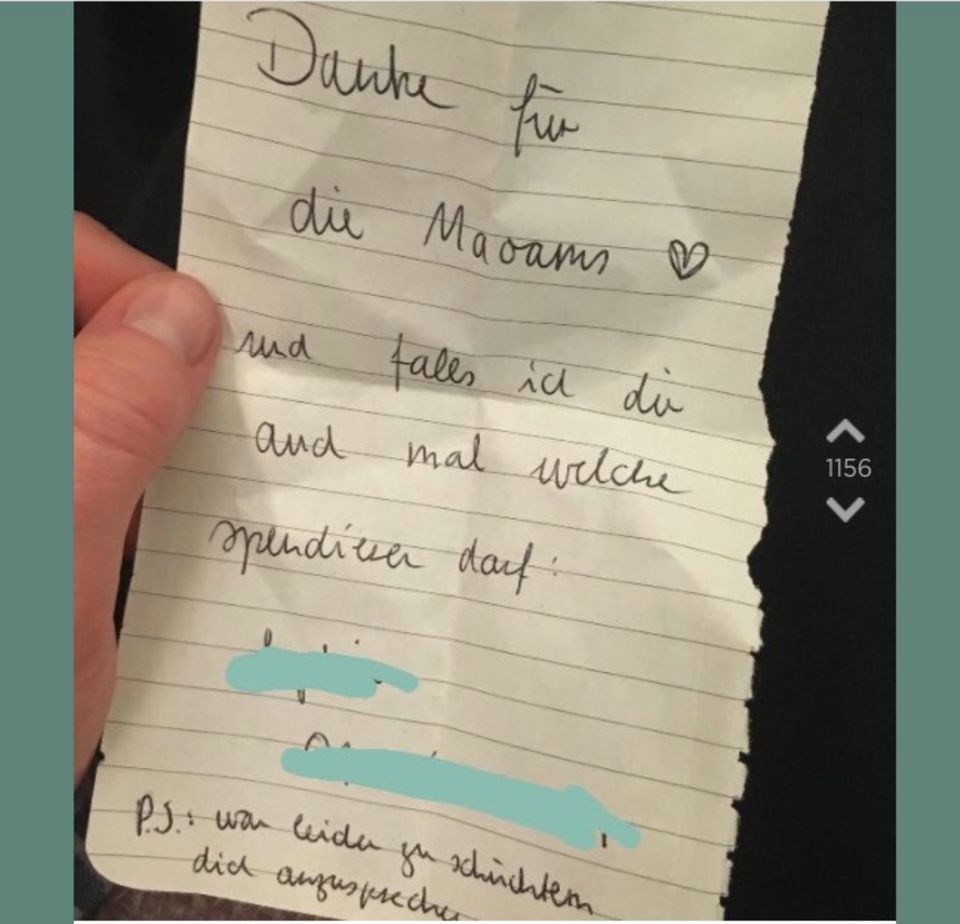 Danke für
die Maoams ♡
und falls ich dir
auch mal welche
1156
spendieren darf :
P.S.: war leider zu schüchtern
dich anzusprechen